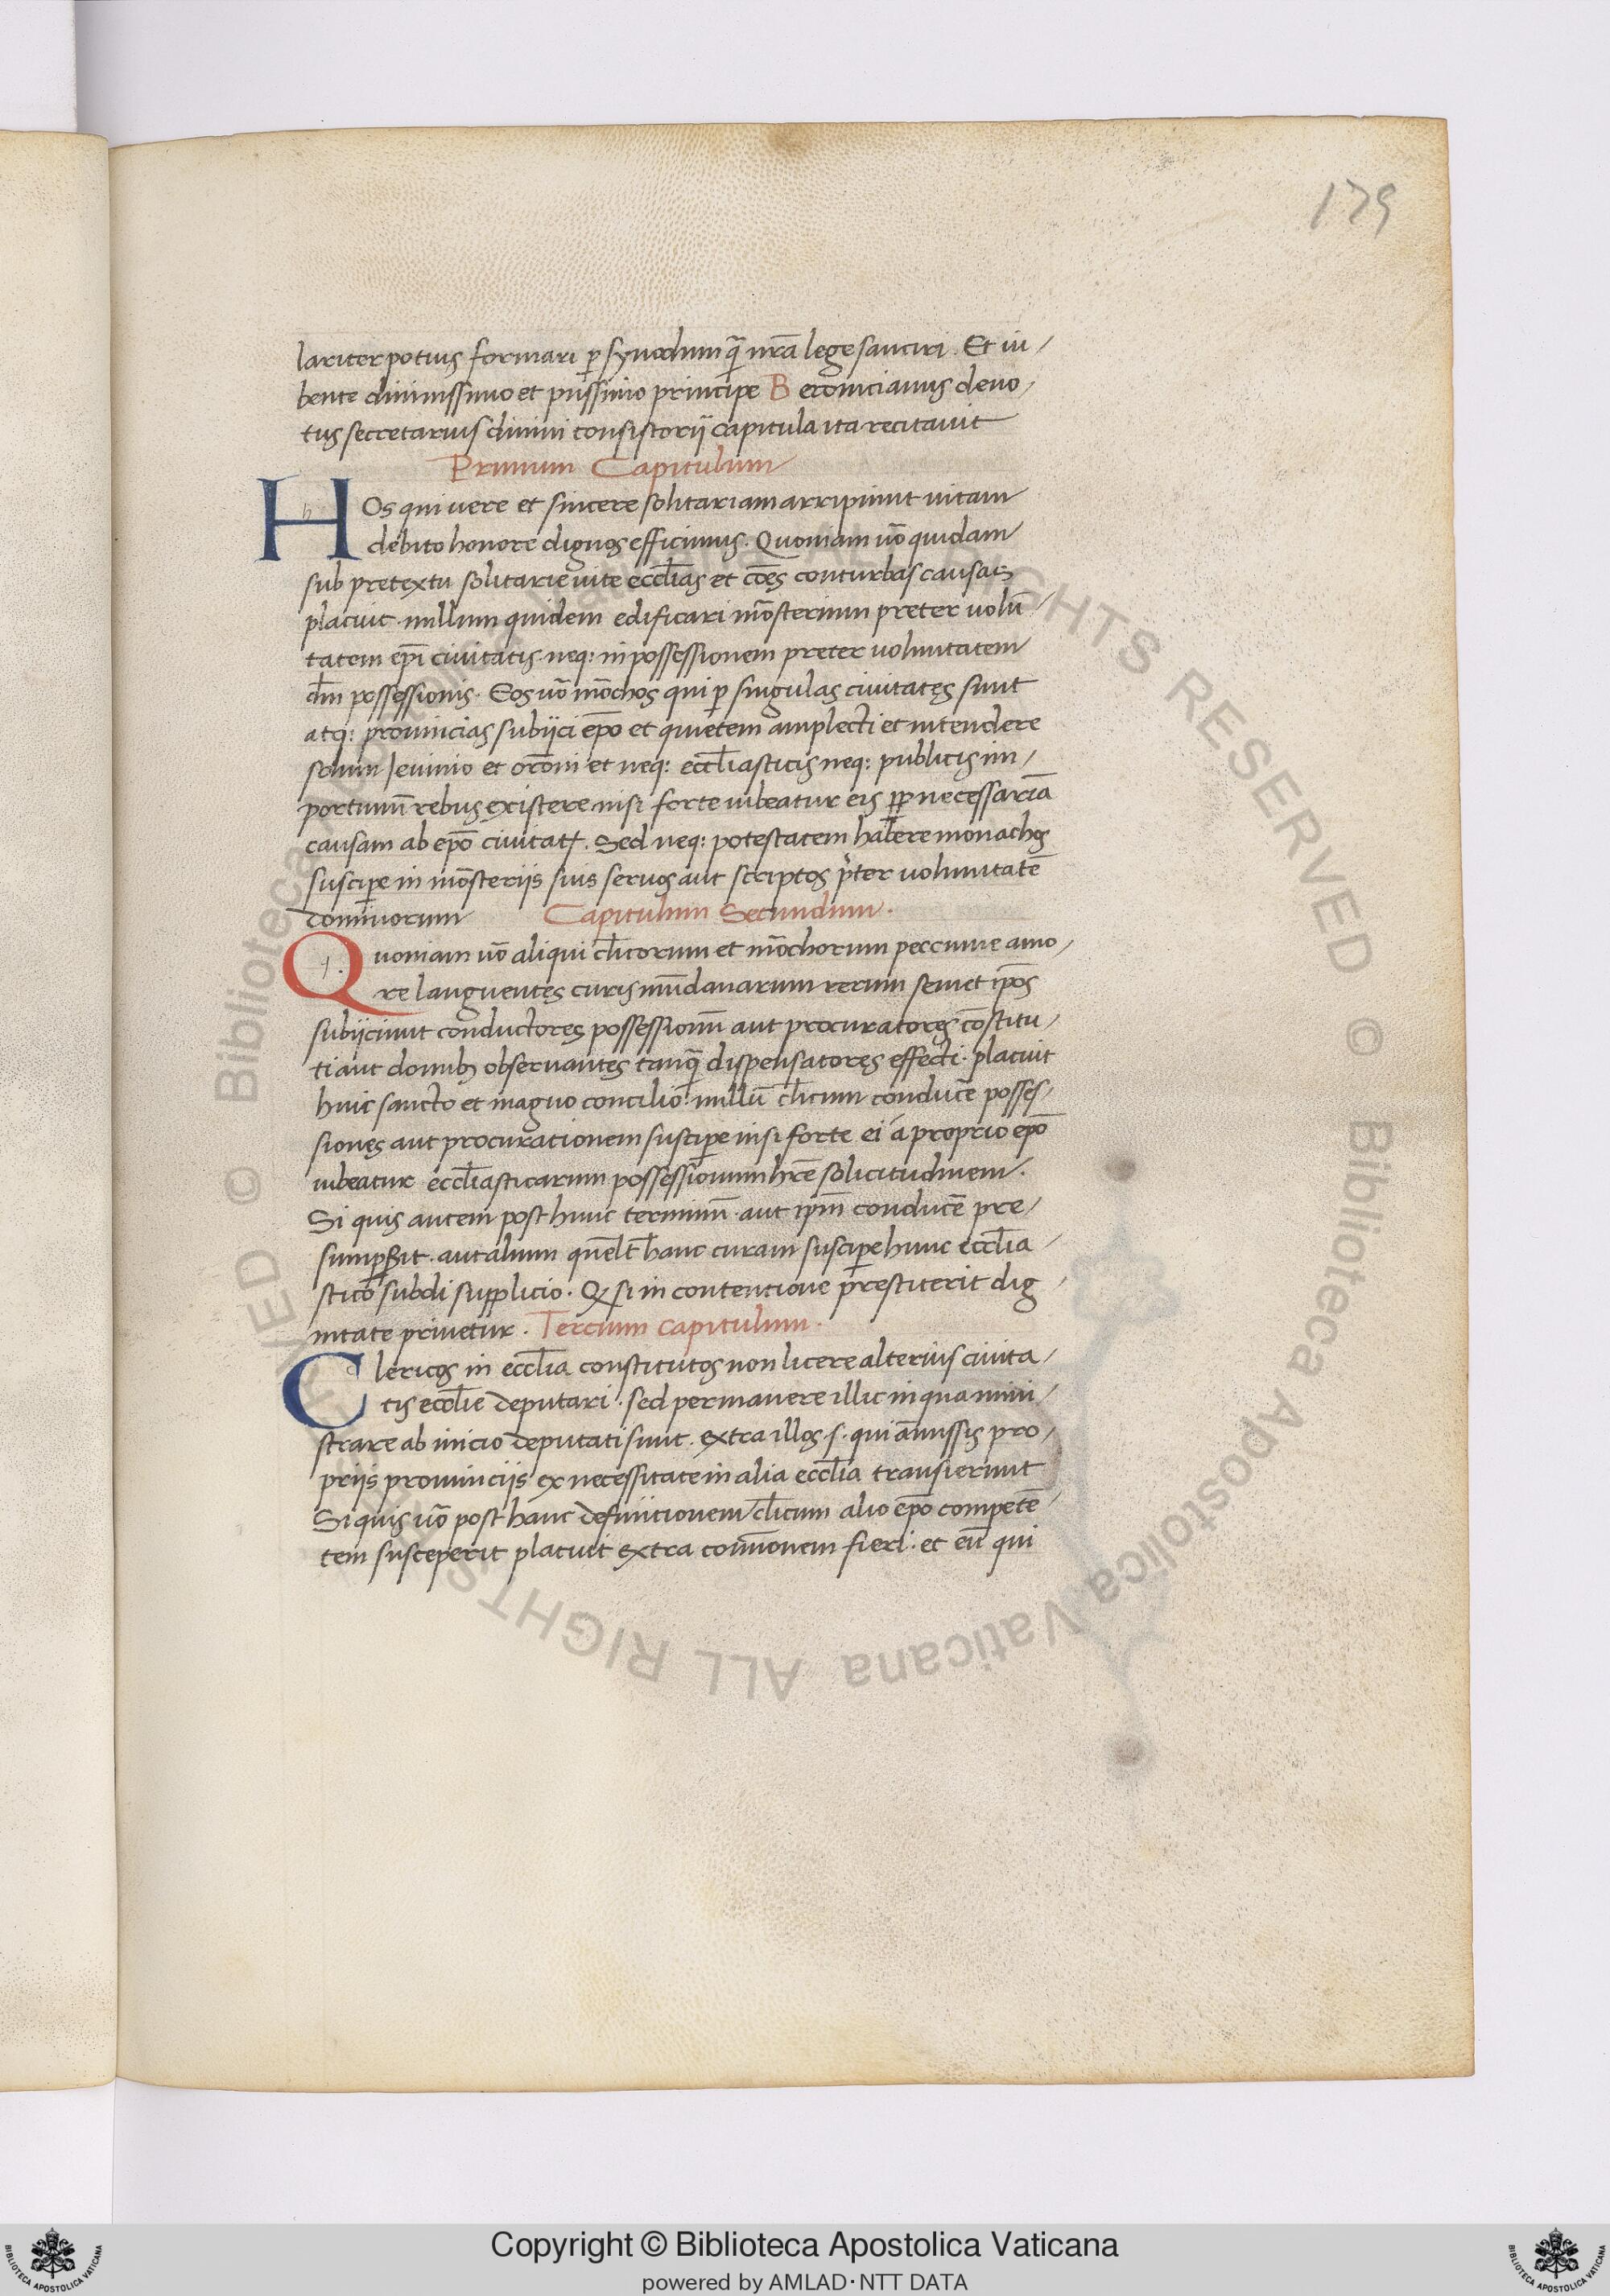 179
lariter potius formari p̲ synodum q̄ nr̄a lege sanciri . Et iu /
bente diuinissimo et piissimo principe Beronicianus deuo /
tus secretarius diuini consistorij capitula ita recitauit
Primum Capitulum
HOs qui uere et sincere solitariam arripiunt uitam
debito honore dignos efficimus . Quoniam uō quidam
sub pretextu solitarie uite eccl̄ias et cōes conturbas causas
placuit nullum quidem edificari mōsterium preter uolū /
tatem ep̄i ciuitatis neq: in possessionem preter uoluntatem
dn̄i possessionis . Eos uō mōchos qui p̲ singulas ciuitates sunt
atq: prouincias subijci ep̄o et quietem amplecti et intendere
solum Ieiunio et orōni et neq: eccl̄iasticis neq: publicis im /
portunū rebus existere nisi forte iubeatur eis pp̄ necessariā
causam ab ep̄o ciuitatꝭ . Sed neq: potestatem habere monachos
suscipe in mōsterijs suis seruos aut scriptos p̄ter uoluntatē
dominorum Capitulum Secundum .
Quoniam uō aliqui cl̄icorum et mōchorum peccunie amo /
re languentes curis mūdanarum rerum semet ip̄os
subijciunt conductores possessionū aut procuratores cōstitu /
ti aut domibꝫ obseruantes tanq̄ dispensatores effecti . placuit
huic sancto et magno concilio . nullū cl̄icum conducē posses /
siones aut procurationem suscipe nisi forte ei á proprio ep̄o
iubeatur eccl̄iasticarum possessionum hr̄e solicitudinem .
Si quis autem post hunc terminū . aut ip̄m conducē pre /
sumpserit . aut alium quēl̄t hanc curam suscipe hunc eccl̄ia /
sticō subdi supplicio . Q̨ si in contentione prestiterit dig /
nitate priuetur . Tercium capitulum .
Clericos in eccl̄ia constitutos non licere alterius ciuita /
tis eccl̄ie deputari . sed permanere illic in qua mini /
strare ab inicio deputati sunt . extra illos .s. qui āmissis pro /
priis prouinciis ex necessitate in alia eccl̄ia transierunt
Si quis uō post hanc definitionem cl̄icum alio ep̄o competē /
tem susceperit placuit extra cōm̄onem fieri . et eū qui
© Biblioteca Apostolica Vaticana ALL RIGHTS RESERVED © Biblioteca Apostolica Vaticana ALL RIGHTS RESERVED
Copyright © Biblioteca Apostolica Vaticana
powered by AMLAD·NTT DATA
BIBLIOTECA APOSTOLICA VATICANA
BIBLIOTECA APOSTOLICA VATICANA